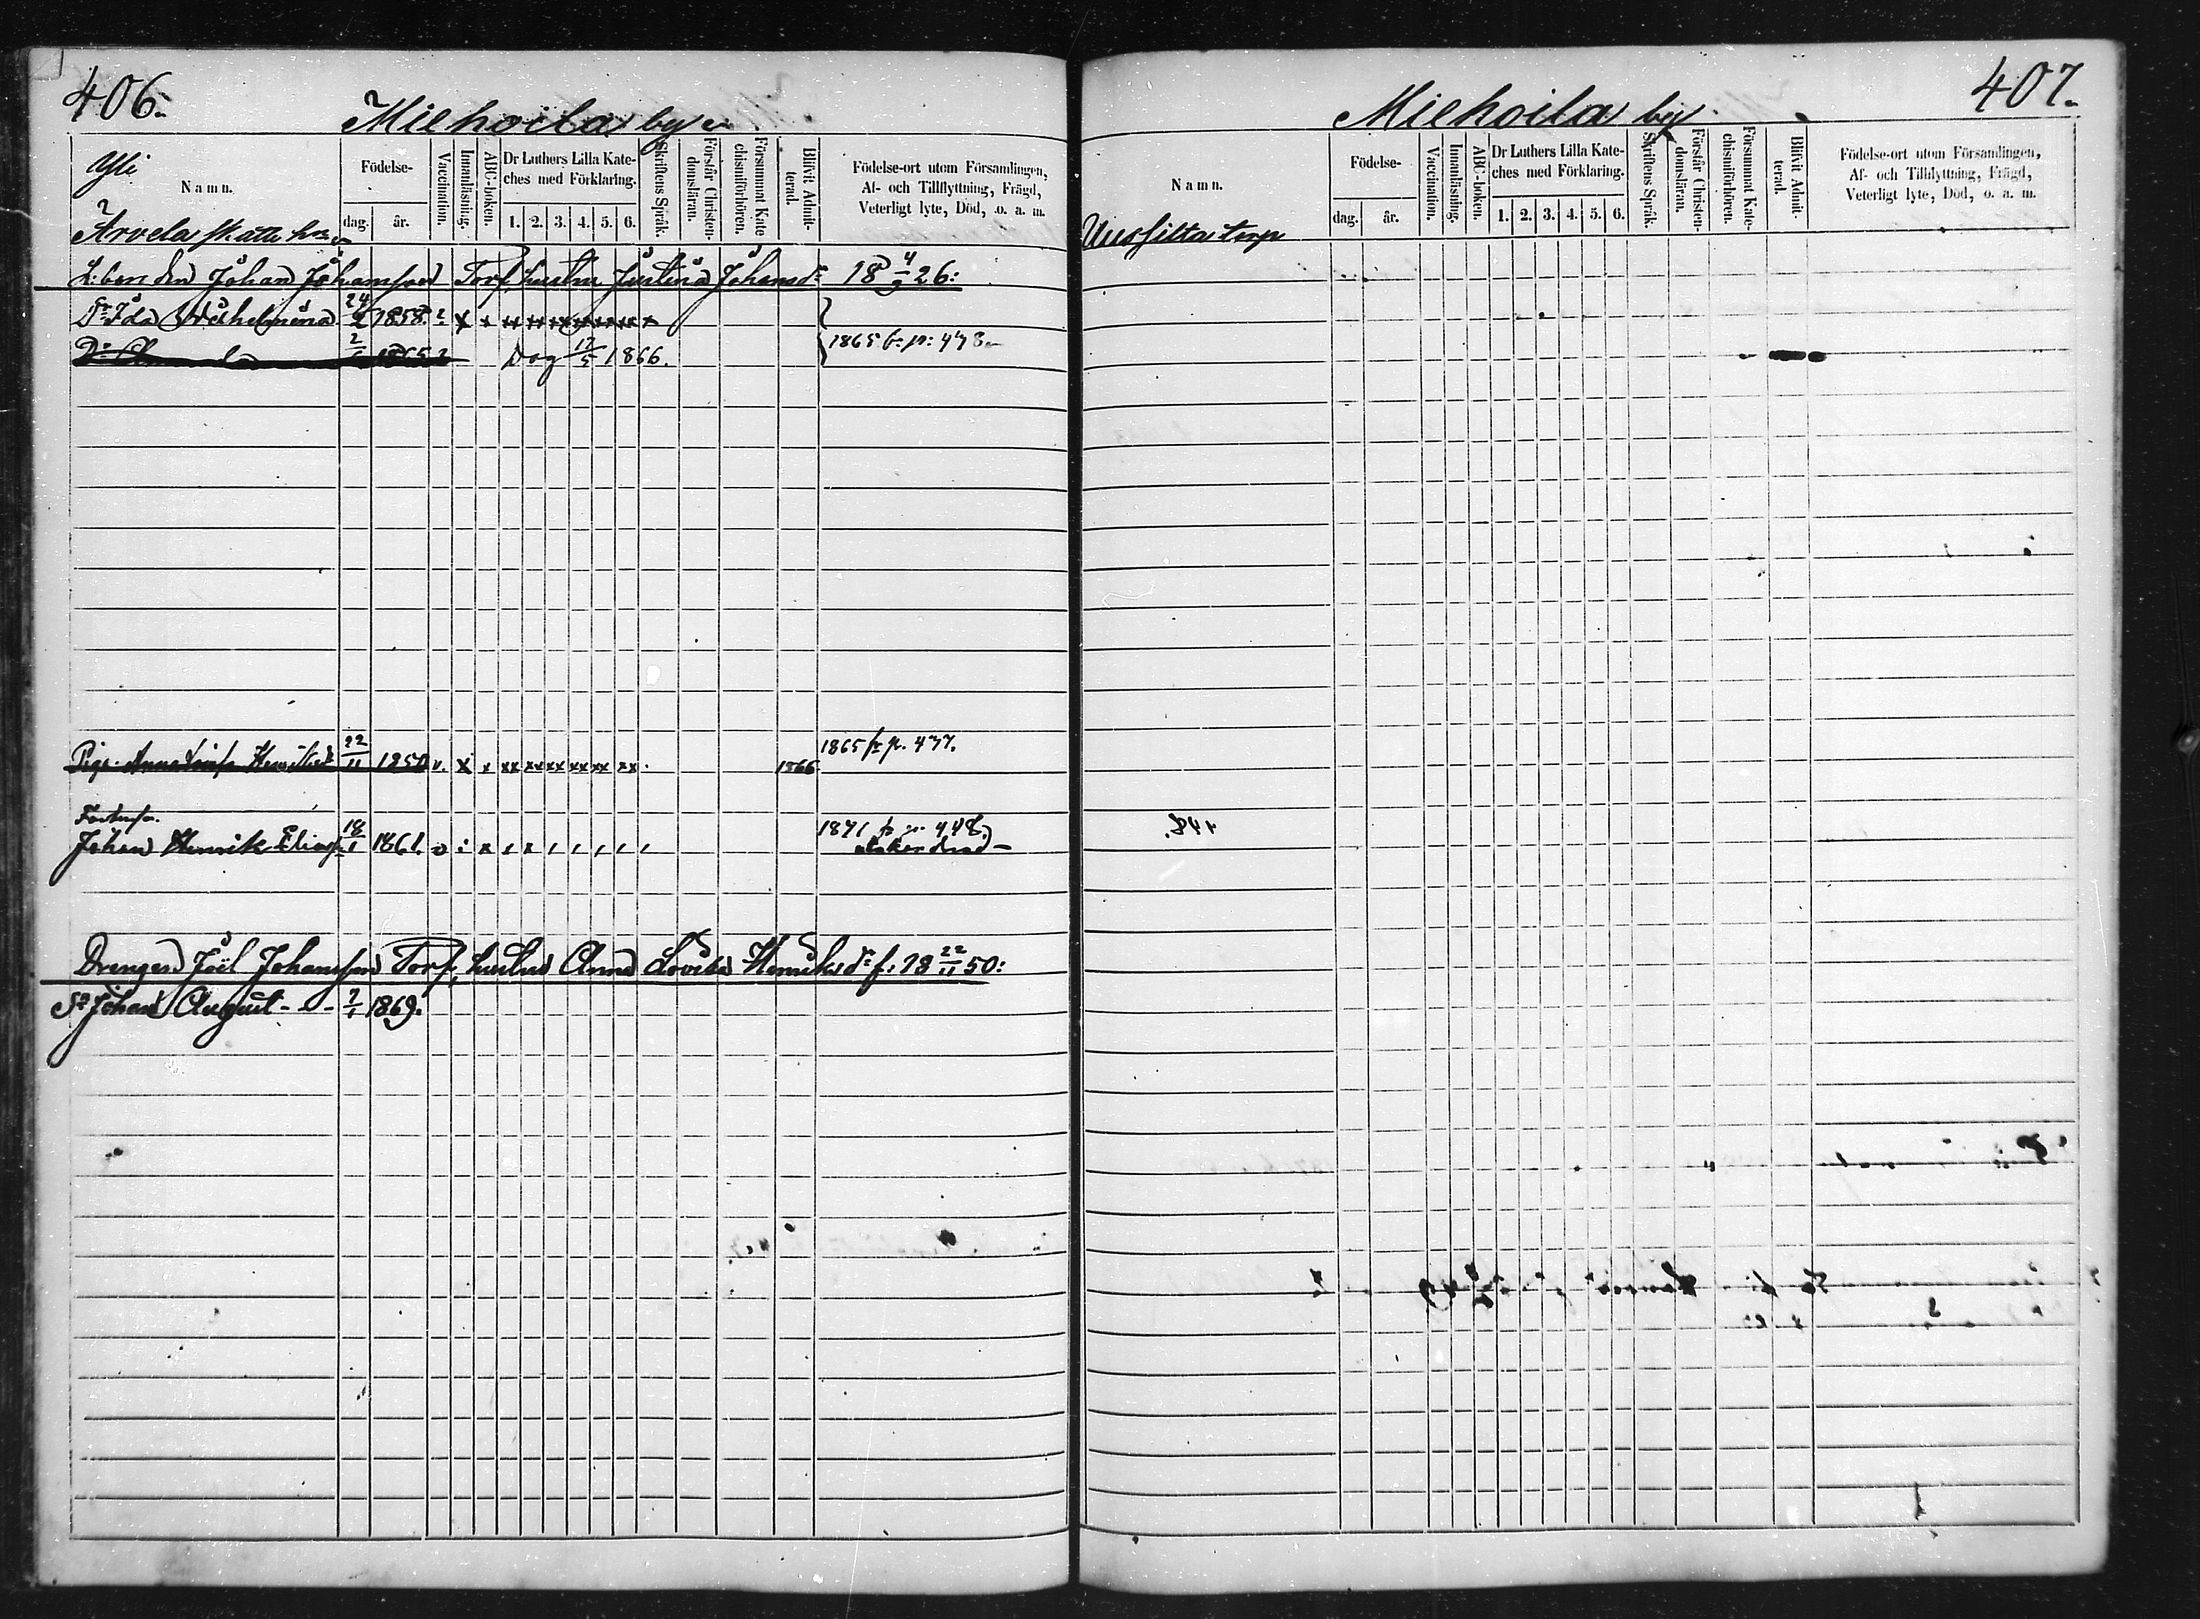 406.
Miehoila by
Yli
Namn.
Födelse-
dag.
år.
Vaccination.
Innanläsning.
ABC-boken.
Dr Luthers Lilla Kate-
ches med Förklaring.
1. 2. 3. 4. 5. 6.
Skriftens Språk.
Förstår Christen-
domsläran.
Försummat Kate
chismiförhören.
Blifvit Admit-
terad.
Födelse-ort utom Församlingen,
Af- och Tillflyttning, Frägd,
Veterligt lyte, Död, o. a. m.
Arvela skatte
Johan Johansson Torp. hustru Justina Johansdr 18 4/9 26:
Dr Ida Wilhelmina 24/2 1858. ? x x xx xx xx xx xx xx x
2/1 1865 Dog 17/5 1866. 1865 fr: p: 478
1865 fr p. 477.
Pig. Anna Lovisa Henriksdr 22/11 1850 v. x x xx xx xx xx xx xx. 1866
Johan Henrik Eliass. 18/1 1861. v : x , x , , , , , 1871 fr p. 448.
Drengen Joël Johansson Torp. hustru Anna Lovisa Henriksdr f: 18 22/11 50:
Sn Johan August - v - 7/1 1869.
407.
Miehoila by
Namn.
Födelse-
dag.
år.
Vaccination.
Innanläsning.
ABC-boken.
Dr Luthers Lilla Kate-
ches med Förklaring.
1. 2. 3. 4. 5. 6.
Skriftens Språk.
Förstår Christen-
domsläran.
Försummat Kate-
chismiförhören.
Blifvit Admit-
terad.
Födelse-ort utom Församlingen,
Af- och Tillflyttning, Frägd,
Veterligt lyte, Död, o. a. m.
Uussilta torp